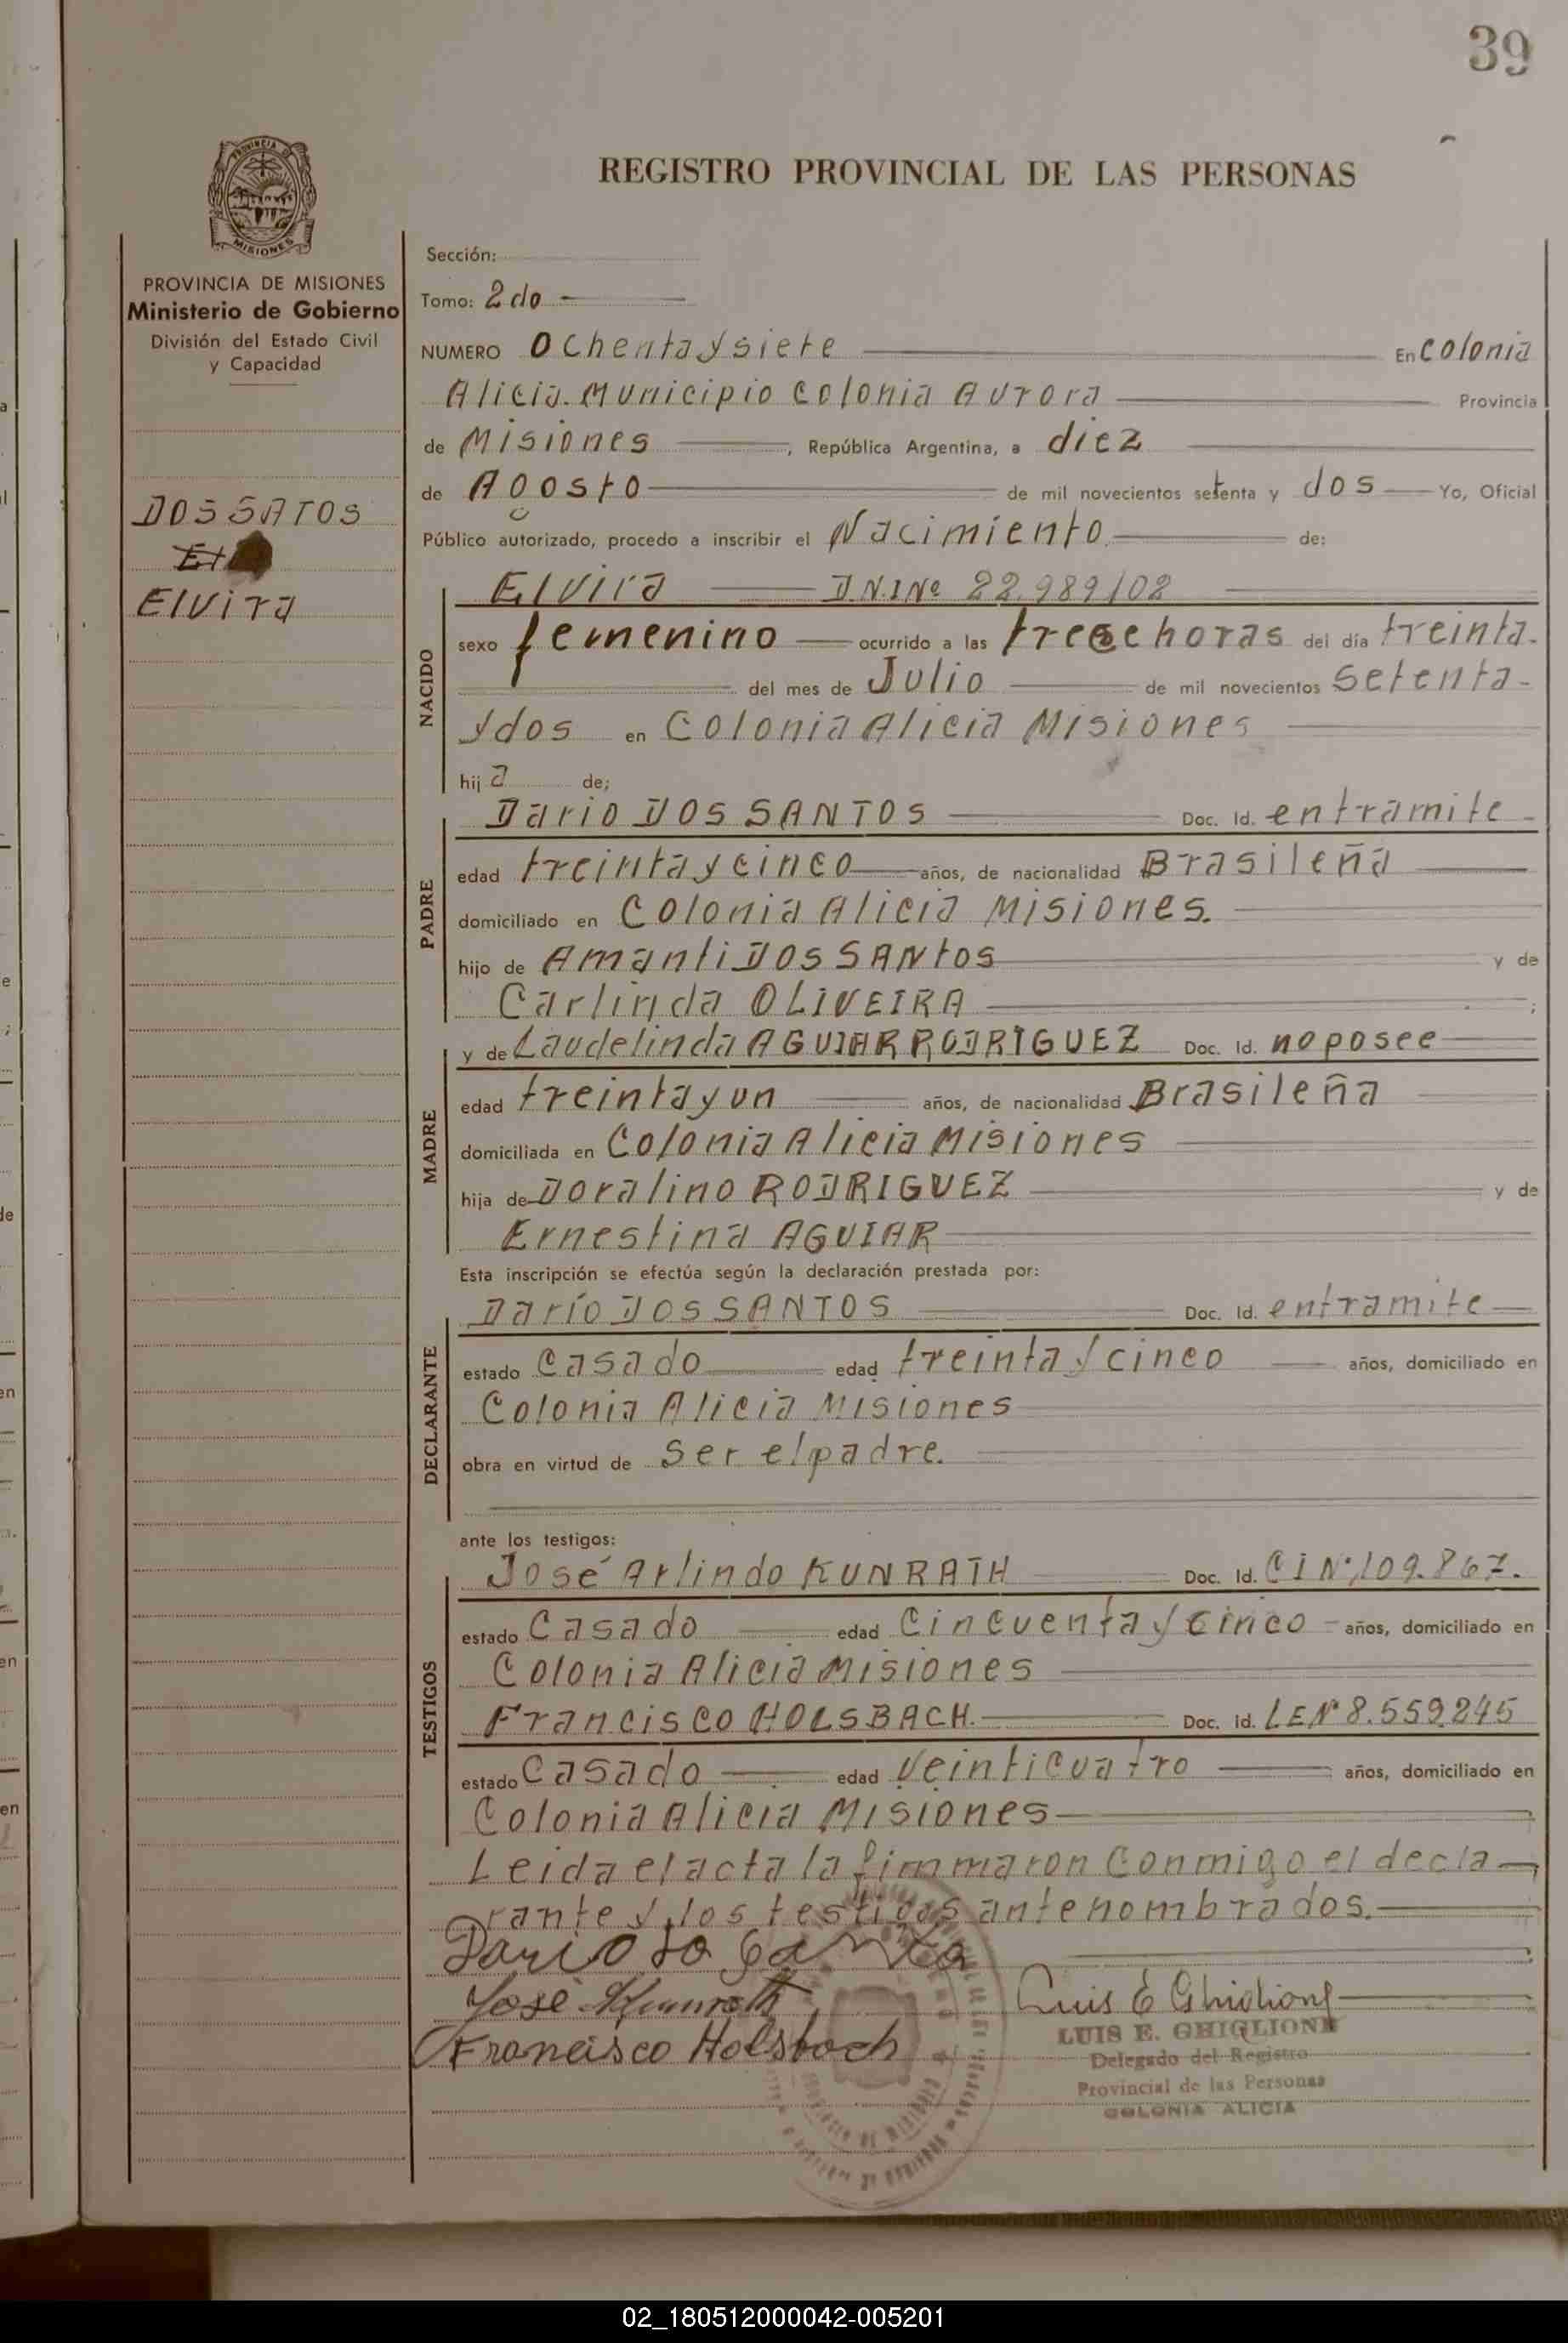 39
REGISTRO PROVINCIAL DE LAS PERSONAS
PROVINCIA DE
MISIONES
PROVINCIA DE MISIONES
Ministerio de Gobierno
División del Estado Civil
y Capacidad
DOS SATOS
Elvira
Sección:
Tomo: 2do
NUMERO Ochenta y siete En Colonia
Alicia. Municipio Colonia Aurora Provincia
de Misiones, República Argentina, a diez
de Agosto de mil novecientos setenta y dos Yo, Oficial
Público autorizado, procedo a inscribir el Nacimiento de:
NACIDO
Elvira D.N.I Nº 22.989102
sexo femenino ocurrido a las trece horas del día treinta
del mes de Julio de mil novecientos setenta
y dos en Colonia Alicia Misiones
hija de;
PADRE
Dario DOS SANTOS Doc. Id. en tramite
edad treinta y cinco años, de nacionalidad Brasileña
domiciliado en Colonia Alicia Misiones.
hijo de Amanti DOS SANtos y de
Carlinda OLIVEIRA ;
MADRE
y de Laudelinda AGUIAR RODRIGUEZ Doc. Id. no posee
edad treinta y un años, de nacionalidad Brasileña
domiciliada en Colonia Alicia Misiones
hija de Doralino RODRIGUEZ y de
Ernestina AGUIAR
Esta inscripción se efectúa según la declaración prestada por:
DECLARANTE
Darío DOS SANTOS Doc. Id. en tramite
estado Casado edad treinta y cinco años, domiciliado en
Colonia Alicia Misiones
obra en virtud de Ser el padre.
ante los testigos:
TESTIGOS
José Arlindo KUNRATH Doc. Id. CI Nº 109.867.
estado Casado edad Cincuenta y cinco años, domiciliado en
Colonia Alicia Misiones
Francisco HOLSBACH. Doc. Id. LE Nº 8.559.245
estado Casado edad Veinticuatro años, domiciliado en
Colonia Alicia Misiones
Leida el acta la firmmaron Conmigo el decla
rante y los testigos antenombrados.
Dario do Santo
José Kunrath
Francisco Holsbach
Luis E Ghiglione
LUIS E. GHIGLIONE
Delegado del Registro
Provincial de las Personas
COLONIA ALICIA
02_180512000042-005201